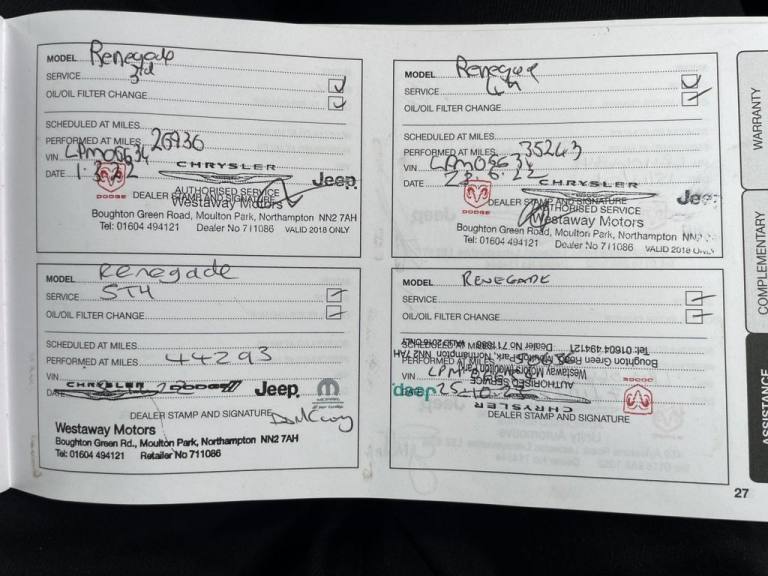 MODEL Renegade
SERVICE 3rd
OIL/OIL FILTER CHANGE
SCHEDULED AT MILES
PERFORMED AT MILES 26936
VIN LPM06634
CHRYSLER
DATE
DODGE
Jeep
AUTHORISED SERVICE
DEALER STAMP AND SIGNATURE
Westaway Motors
Boughton Green Road, Moulton Park, Northampton NN2 7AH
Tel: 01604 494121 Dealer No 711086 VALID 2018 ONLY
MODEL Renegade
SERVICE 4th
OIL/OIL FILTER CHANGE
SCHEDULED AT MILES
PERFORMED AT MILES 35243
VIN LPM06634
DATE 23.6.22
CHRYSLER
DODGE
Jeep
DEALER STAMP AND SIGNATURE
AUTHORISED SERVICE
Westaway Motors
Boughton Green Road, Moulton Park, Northampton NN2
Tel: 01604 494121 Dealer No 711086 VALID 2018 ONLY
MODEL Renegade
SERVICE 5TH
OIL/OIL FILTER CHANGE
SCHEDULED AT MILES
PERFORMED AT MILES 44293
VIN
CHRYSLER DODGE Jeep
DATE
DEALER STAMP AND SIGNATURE
Westaway Motors
Boughton Green Rd., Moulton Park, Northampton NN2 7AH
Tel: 01604 494121 Retailer No 711086
MODEL RENEGADE
SERVICE
OIL/OIL FILTER CHANGE
SCHEDULED AT MILES
PERFORMED AT MILES
VIN
DATE 25-10-23
Tel: 01604 494121 Dealer No 711086 VALID 2018 ONLY
Boughton Green Road, Moulton Park, Northampton NN2 7AH
Westaway Motors
AUTHORISED SERVICE
DODGE
Jeep
CHRYSLER
DEALER STAMP AND SIGNATURE
27
WARRANTY
COMPLEMENTARY
ASSISTANCE